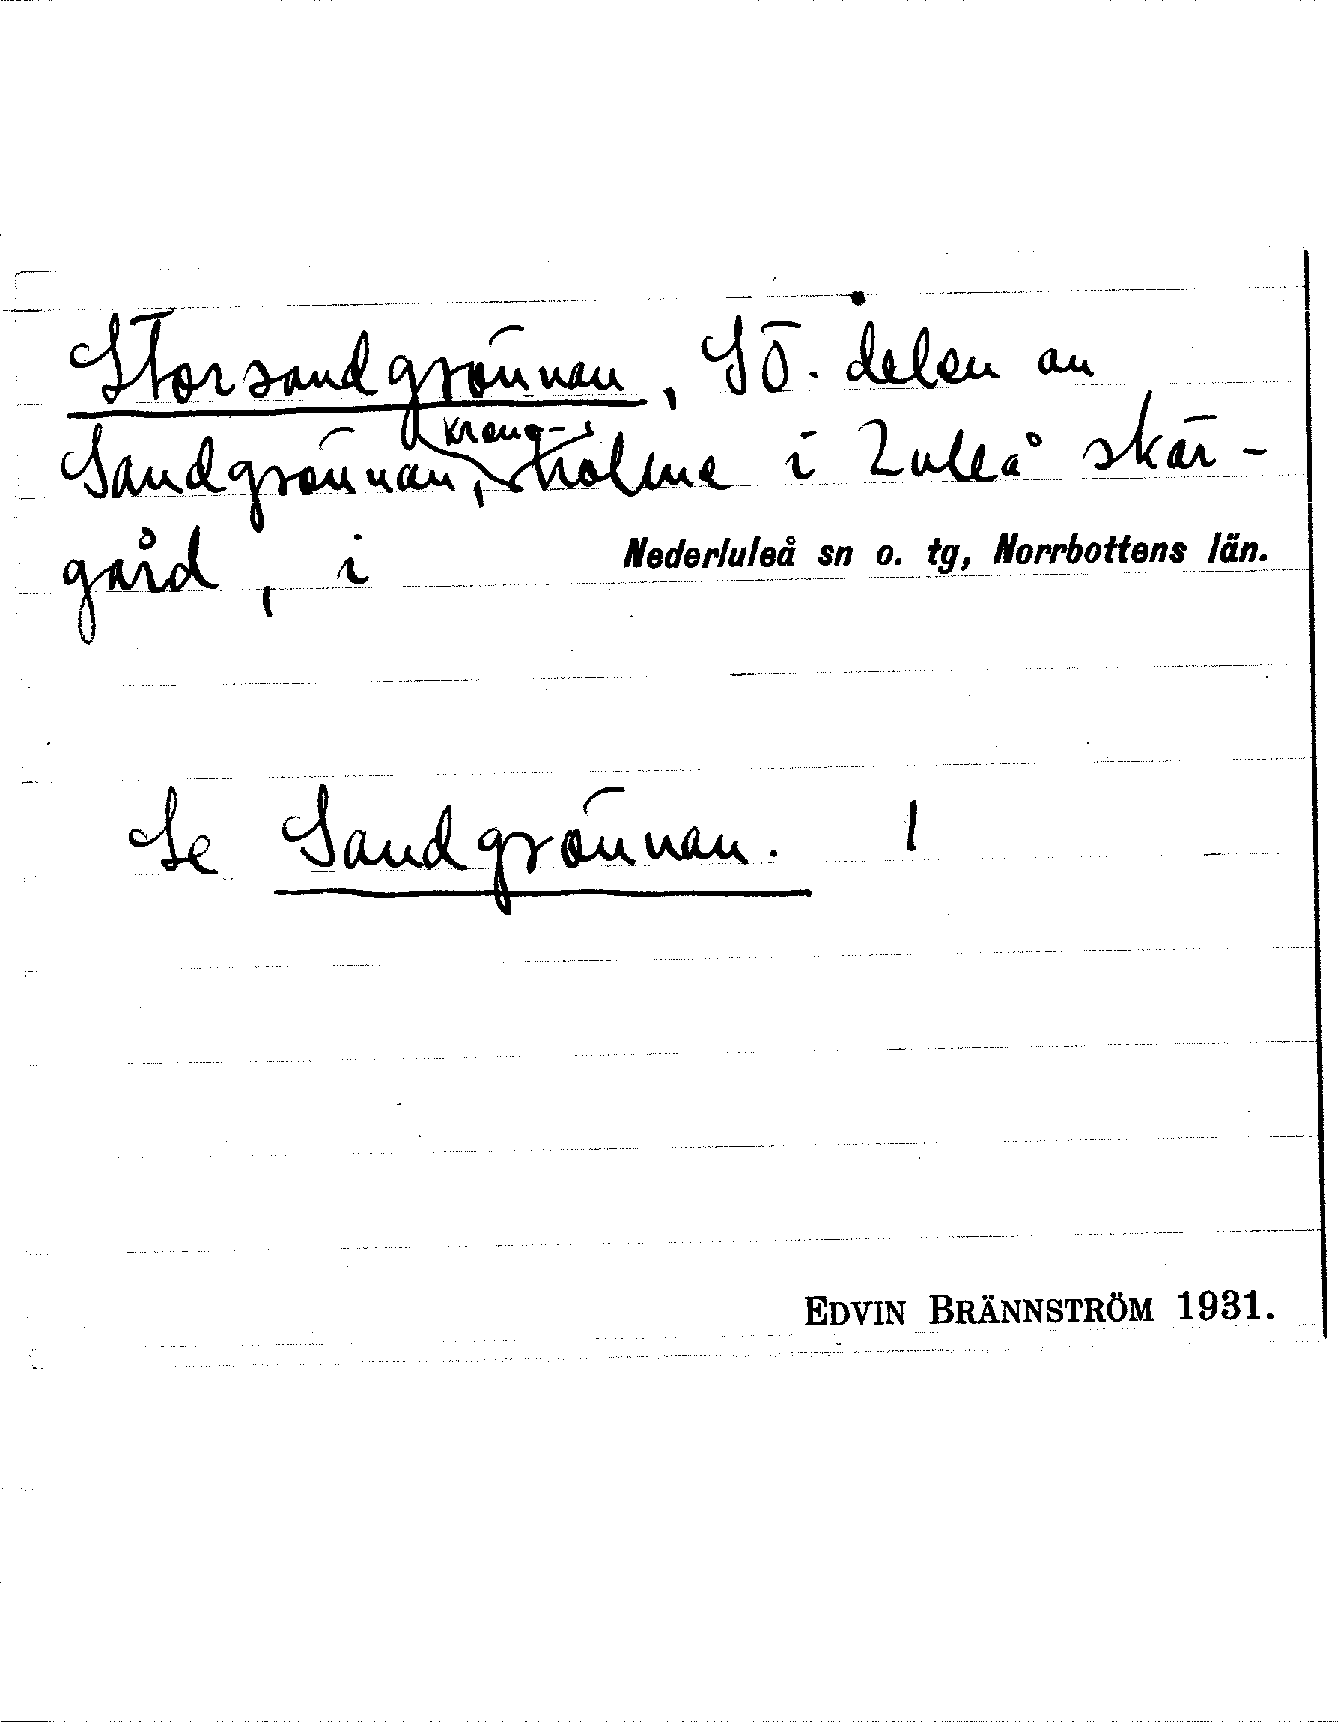 Storsandgrönnan, SÖ. delen av
krono-
Sandgrönnan, holme i Luleå skär-
gård, i Nederluleå sn o. tg, Norrbottens län.
Se Sandgrönnan.
EDVIN BRÄNNSTRÖM 1931.